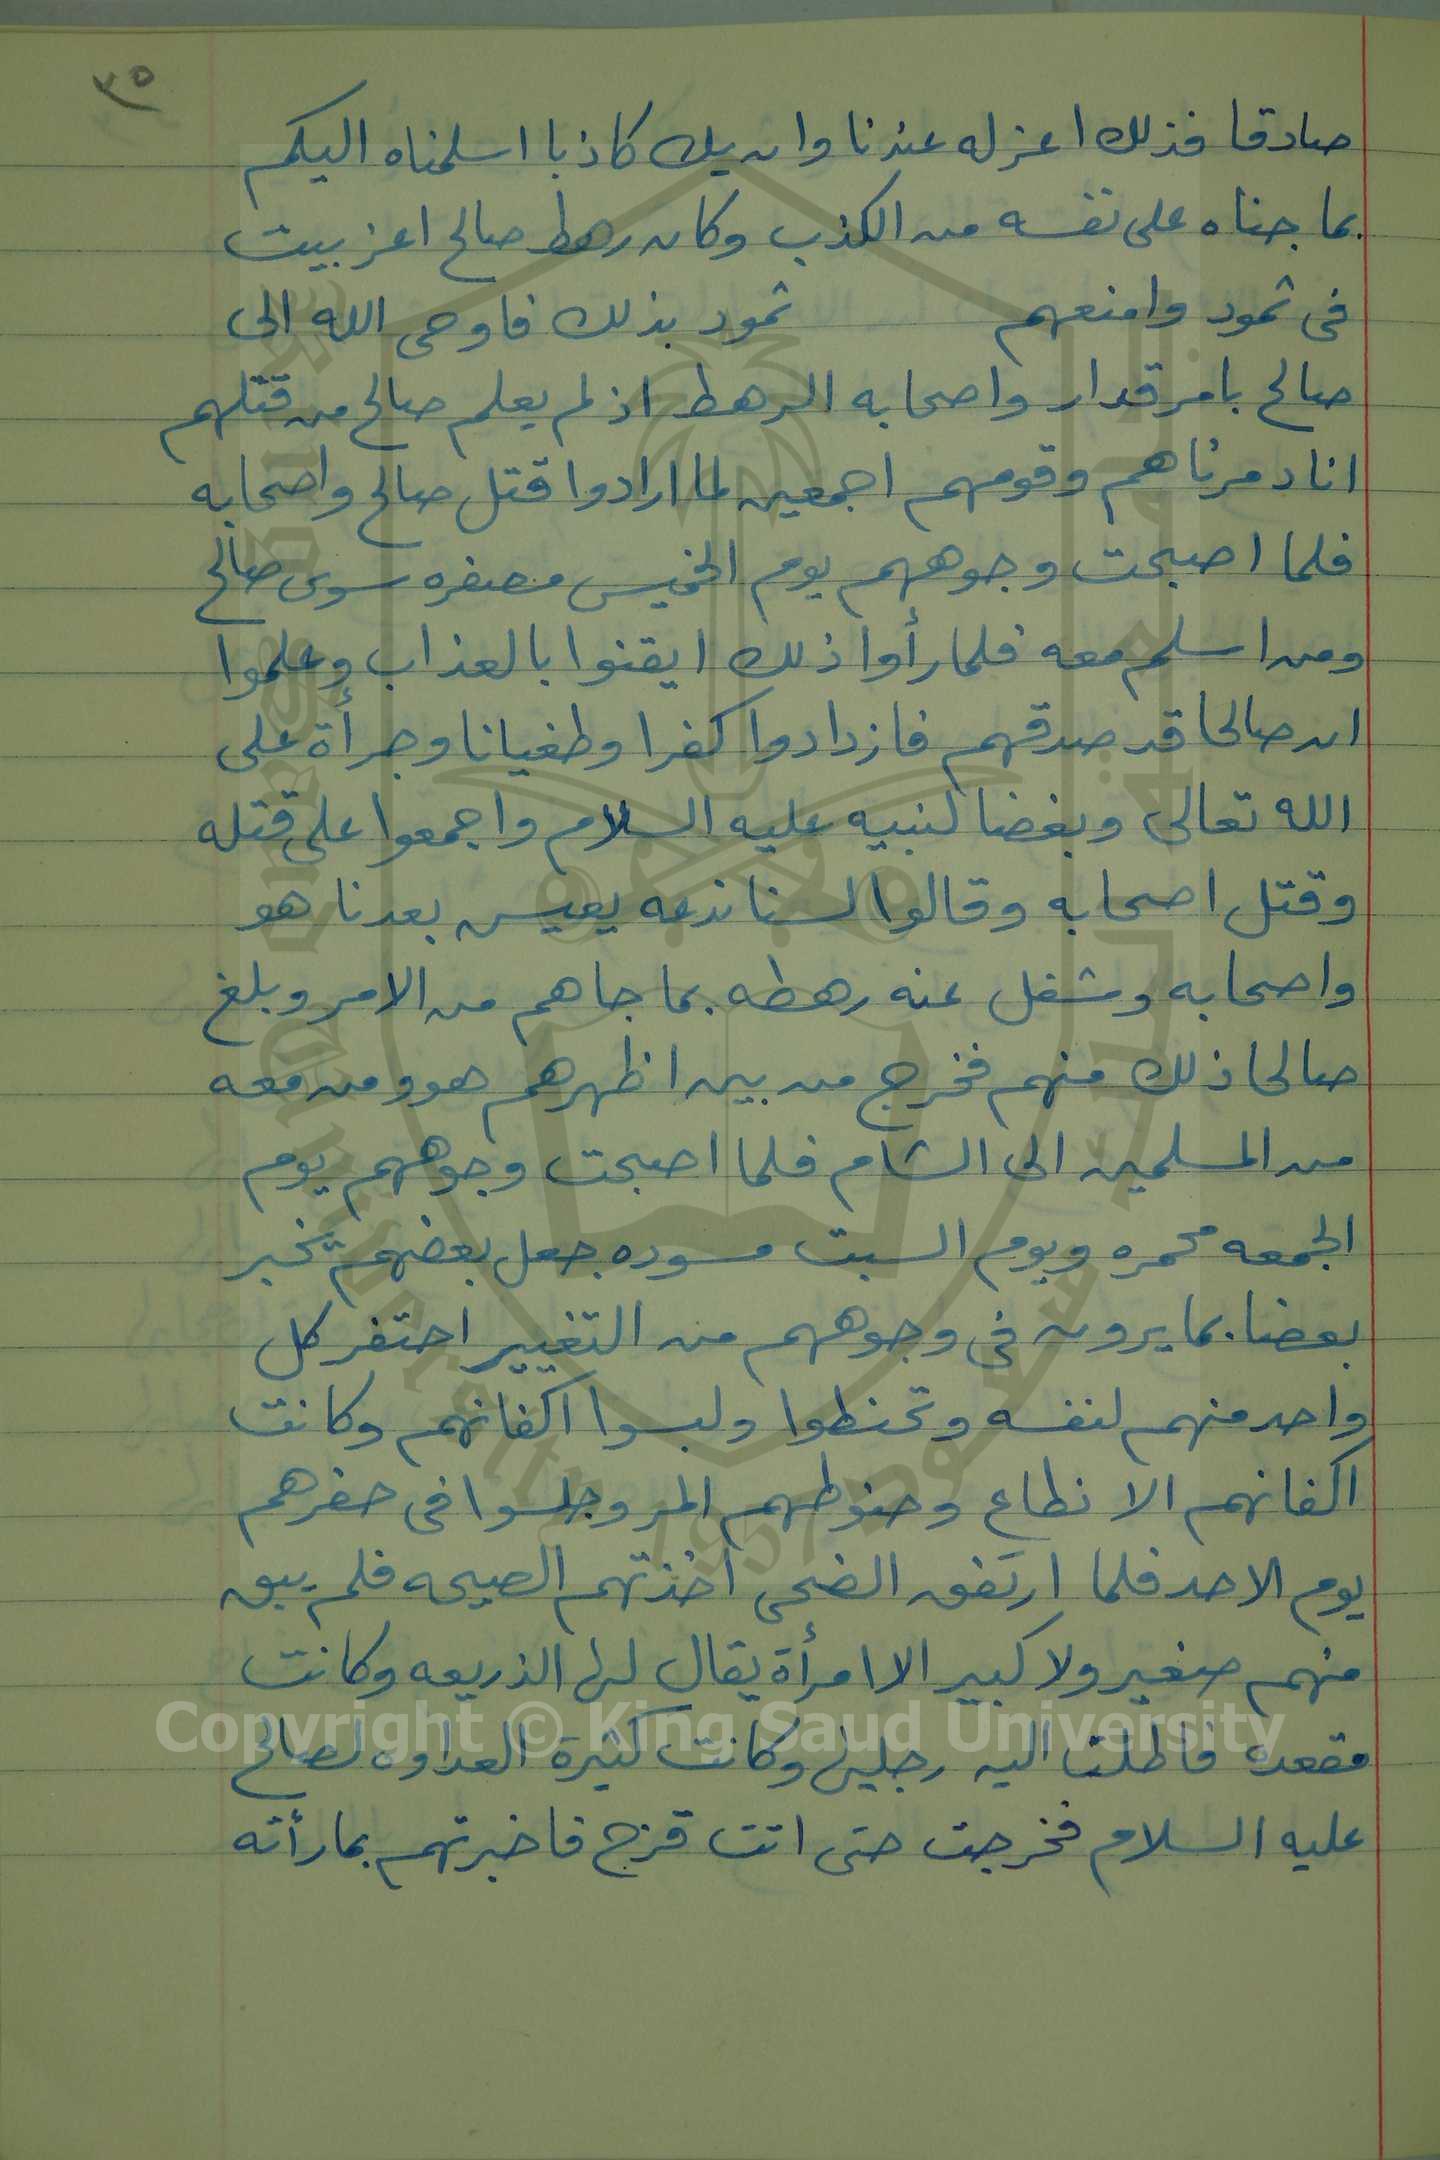 ٣٥
صادقا فذلك اعز له عندنا وان يك كاذبا اسلمناه اليكم
بما جناه على نفسه من الكذب وكان رهط صالح اعز بيت
فى ثمود وامنعهم ثمود بذلك فاوحى الله الى
صالح بامر قدار واصحابه الرهط اذ لم يعلم صالح من قتلهم
انا دمرناهم وقومهم اجمعين لما ارادوا قتل صالح واصحابه
فلما اصبحت وجوههم يوم الخميس مصفره سوى صالح
ومن اسلم معه فلما رأوا ذلك ايقنوا بالعذاب وعلموا
ان صالحا قد صدقهم فازدادوا كفرا وطغيانا وجرأة على
الله تعالى وبغضا لنبيه عليه السلام واجمعوا على قتله
وقتل اصحابه وقالوا لسنا ندعه يعيس بعدنا هو
واصحابه وشغل عنه رهطه بما جاهم من الامر وبلغ
صالحا ذلك منهم فخرج من بين اظهرهم هو ومن معه
من المسلمين الى الشام فلما اصبحت وجوههم يوم
الجمعه محمره ويوم السبت مسوده جعل بعضهم يخبر
بعضا بما يرون فى وجوههم من التغيير احتفر كل
واحد منهم لنفسه وتحنطوا ولبسوا اكفانهم وكانت
اكفانهم الانطاع وحنوطهم المر وجلسوا فى حفرهم
يوم الاحد فلما ارتفق الضحى اخذتهم الصيحه فلم يبق
منهم صغير ولا كبير الا امرأة يقال لها الذريعه وكانت
مقعده فاطلت اليه رجليها وكانت كثيرة العداوه لصالح
عليه السلام فخرجت حتى اتت قزح فاخبرتهم بما رأته
Copyright © King Saud University
جامعة الملك سعود
King Saud University
1957